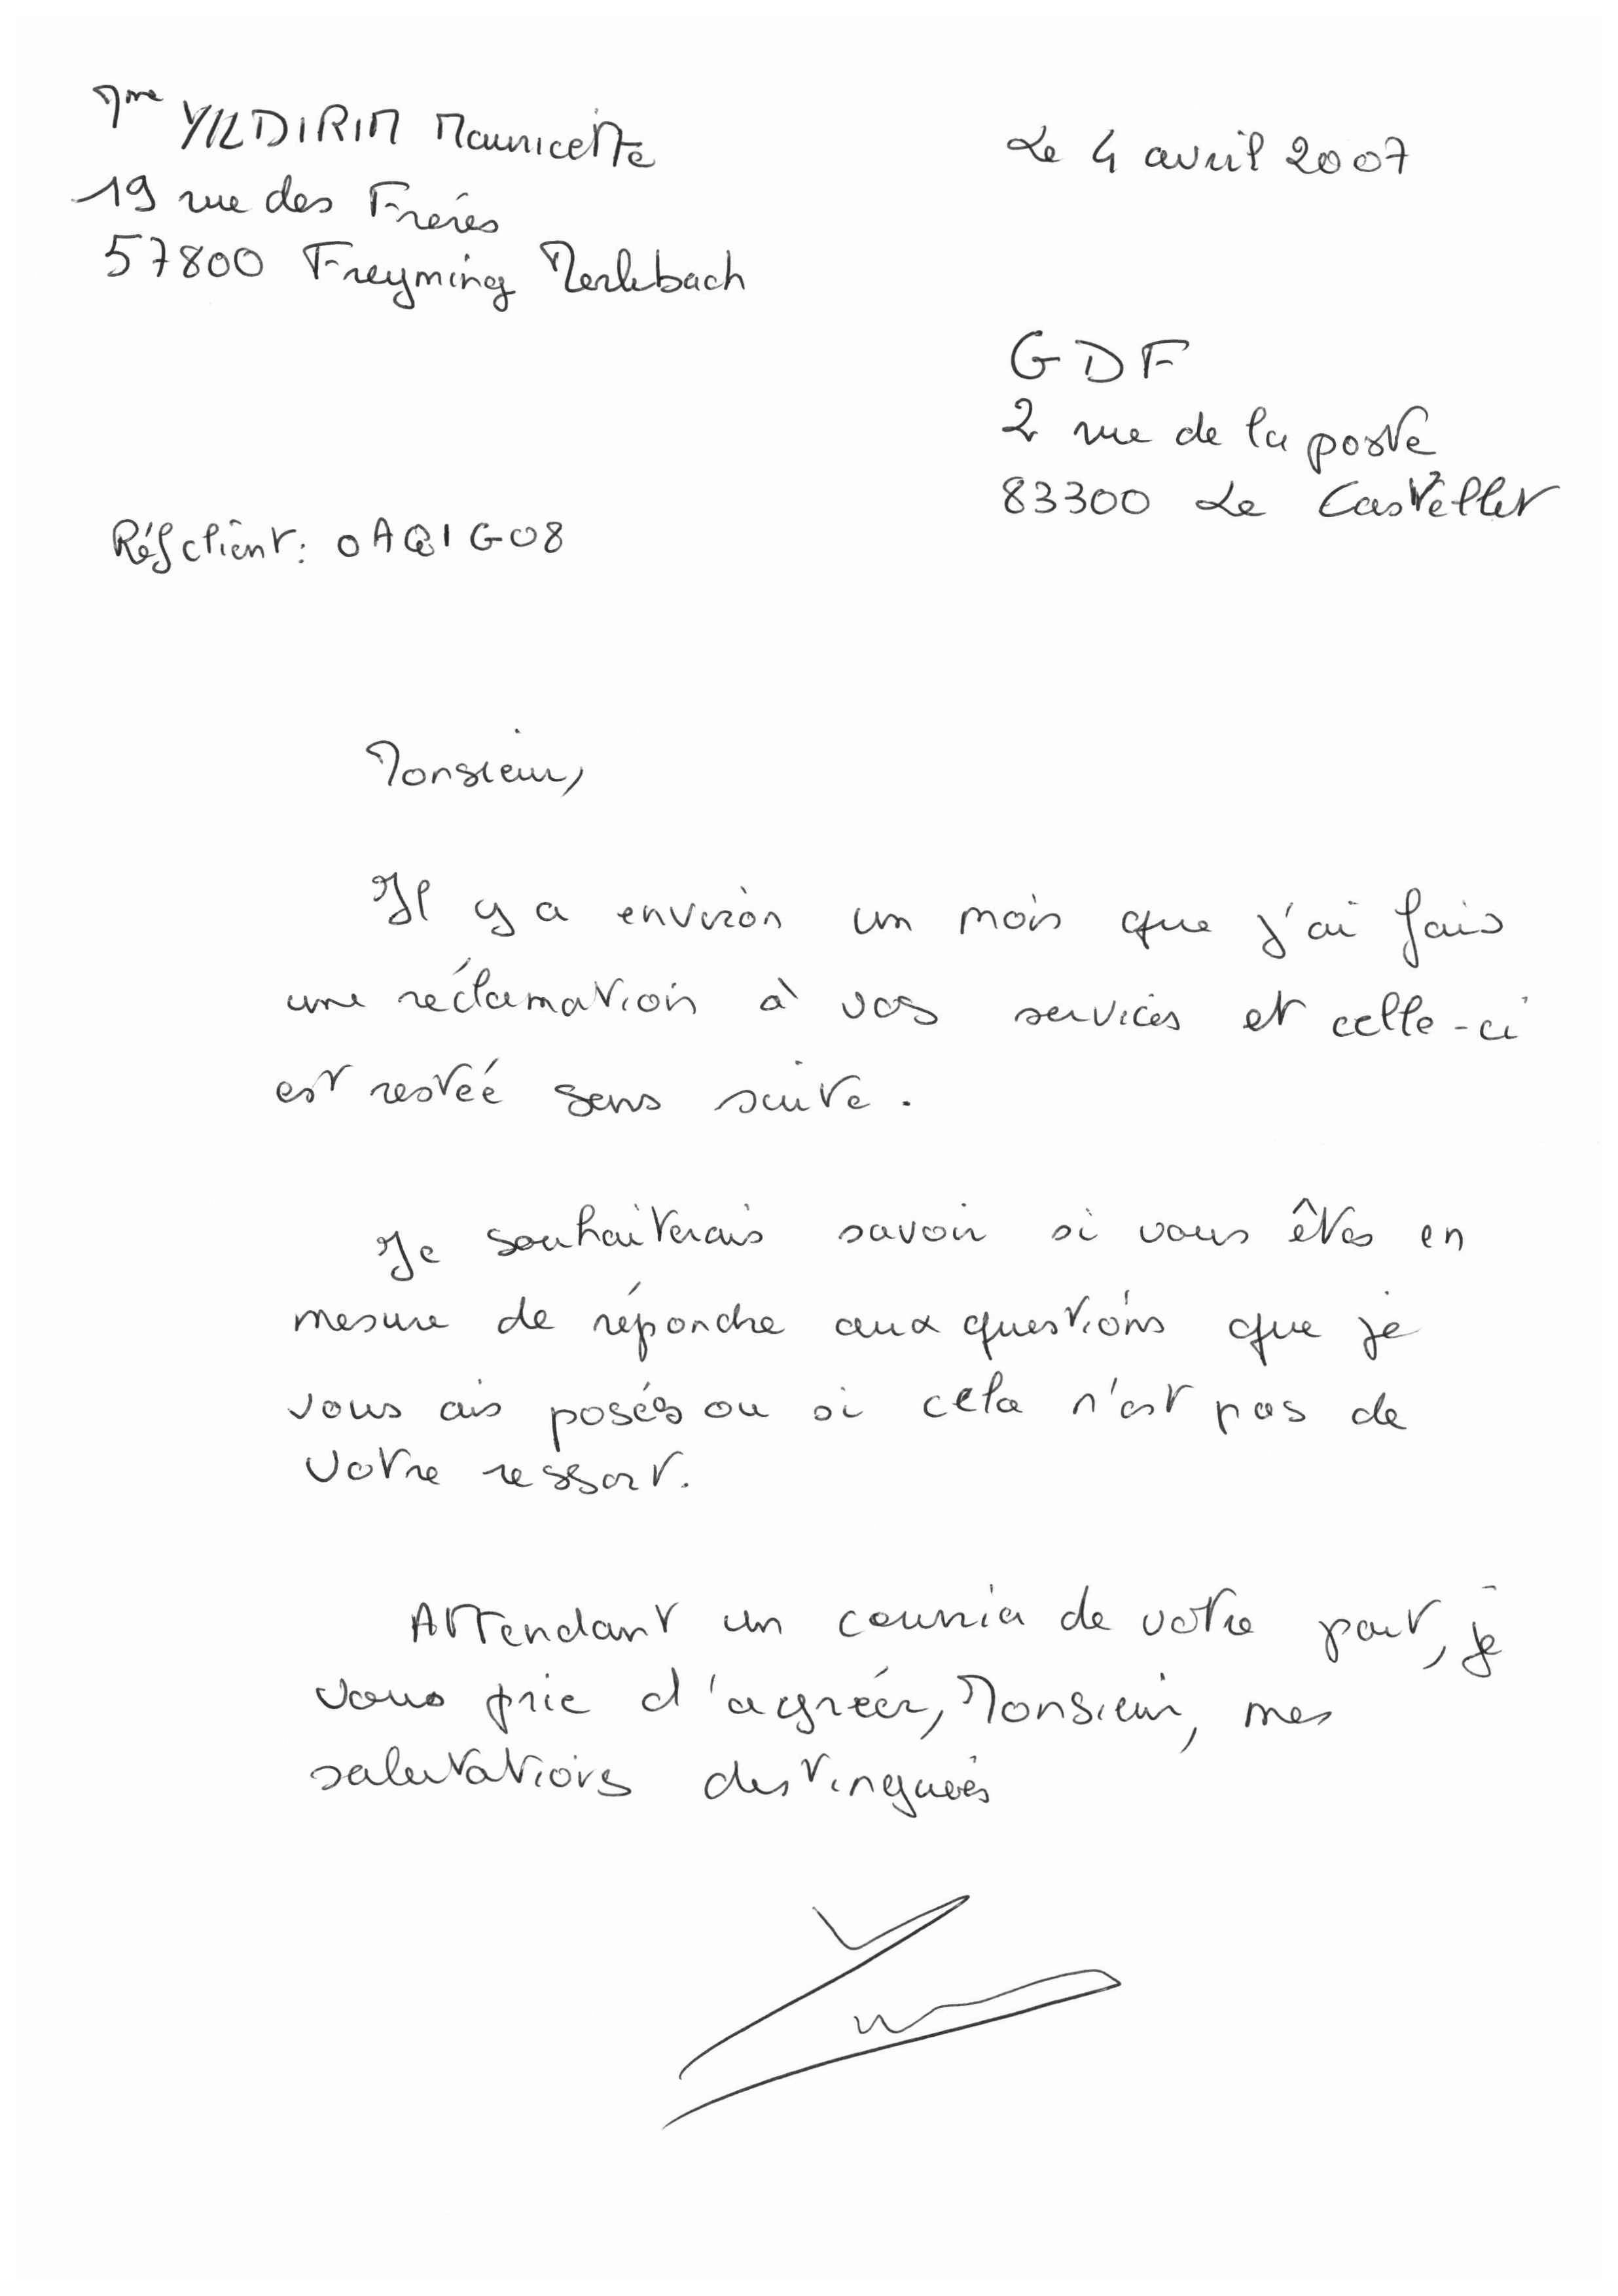 Mme YILDIRIM Mauricette
19 rue des Frères
57800 Freyming Merlebach
Le 4 avril 2007
GDF
2 rue de la poste
83300 Le Castellet
Réf client : 0AQIG08
Monsieur,
Il y a environ un mois que j'ai fais
une réclamation à vos services et celle-ci
est restée sans suite.
Je souhaiterais savoir si vous êtes en
mesure de répondre aux questions que je
vous ais posés ou si cela n'est pas de
votre ressort.
Attendant un courrier de votre part, je
vous prie d'agréer, Monsieur, mes
salutations destinguées